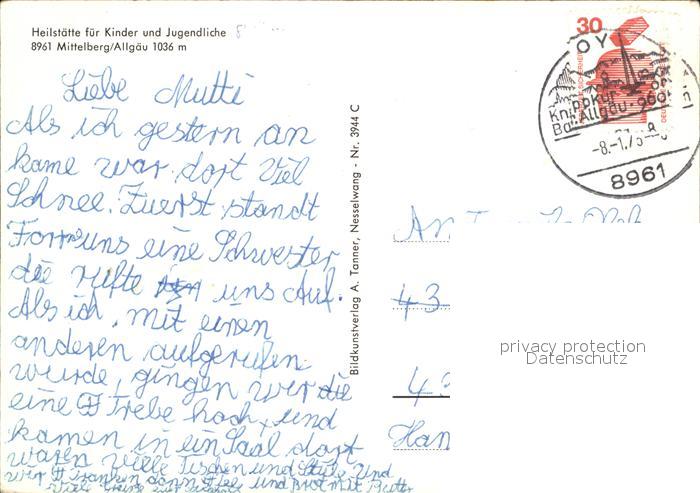 Heilstätte für Kinder und Jugendliche
8961 Mittelberg/Allgäu 1036 m
Liebe Mutti
Als ich gestern an
kame war dort Viel
Schnee. Zuerst standt
uns eine Schwester
die rufte uns auf.
Als ich, mit einen
anderen aufgerufen
wurde, gingen wir die
eine Trebe hoch, und
kamen in ein Saal dort
waren viele Tischen und Stüle Und
wir tranken dann Tee und Brot mit Butter
Bildkunstverlag A. Tanner, Nesselwang - Nr. 3944 C
30
OY
Allgäu
-8.-1.75
8961
An
43
Han
privacy protection
Datenschutz